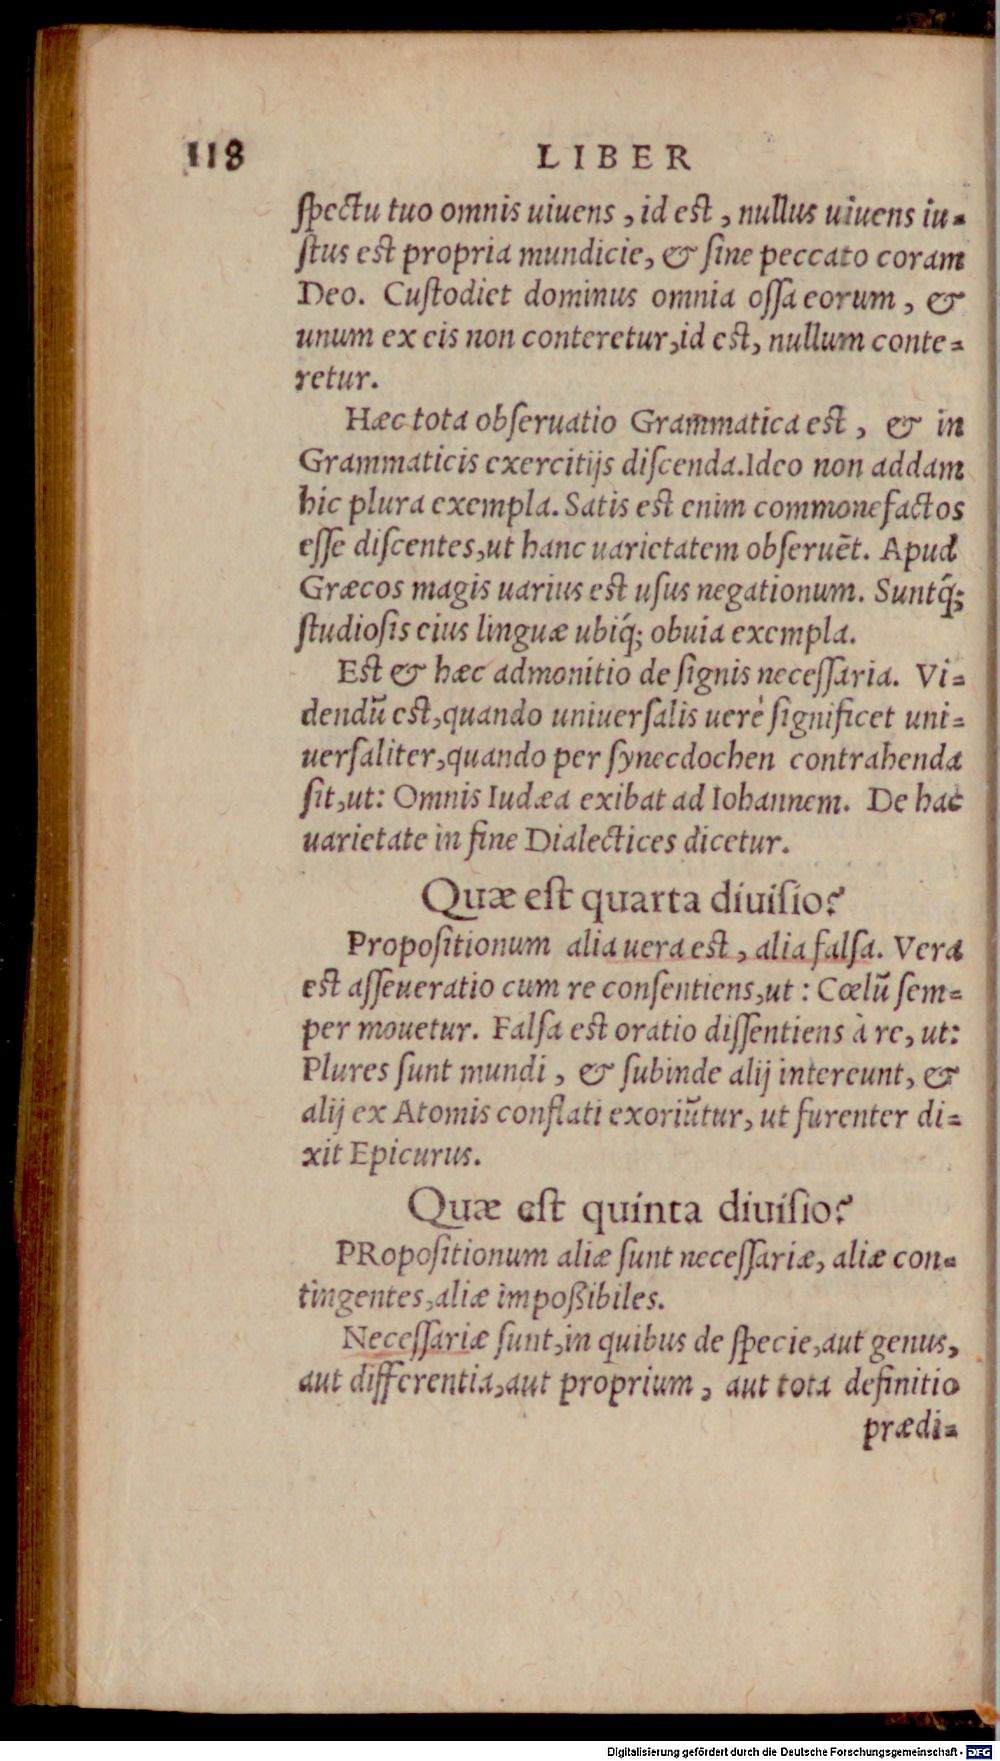 118 LIBER
spectu tuo omnis uiuens, id est, nullus uiuens iu-
stus est propria mundicie, & sine peccato coram
Deo. Custodiet dominus omnia ossa eorum, &
unum ex eis non conteretur, id est, nullum conte-
retur.
Hæc tota obseruatio Grammatica est, & in
Grammaticis exercitijs discenda. Ideo non addam
hic plura exempla. Satis est enim commonefactos
esse discentes, ut hanc uarietatem obseruẽt. Apud
Græcos magis uarius est usus negationum. Suntq́;
studiosis eius linguæ ubiq́; obuia exempla.
Est & hæc admonitio de signis necessaria. Vi-
dendũ est, quando uniuersalis uerè significet uni-
uersaliter, quando per synecdochen contrahenda
sit, ut: Omnis Iudæa exibat ad Iohannem. De hac
uarietate in fine Dialectices dicetur.
Quæ est quarta diuisio?
Propositionum alia uera est, alia falsa. Vera
est asseueratio cum re consentiens, ut: Cœlũ sem-
per mouetur. Falsa est oratio dissentiens à re, ut:
Plures sunt mundi, & subinde alij intereunt, &
alij ex Atomis conflati exoriũtur, ut furenter di-
xit Epicurus.
Quæ est quinta diuisio?
PRopositionum aliæ sunt necessariæ, aliæ con-
tingentes, aliæ impoßibiles.
Necessariæ sunt, in quibus de specie, aut genus,
aut differentia, aut proprium, aut tota definitio
prædi-
Digitalisierung gefördert durch die Deutsche Forschungsgemeinschaft - DFG